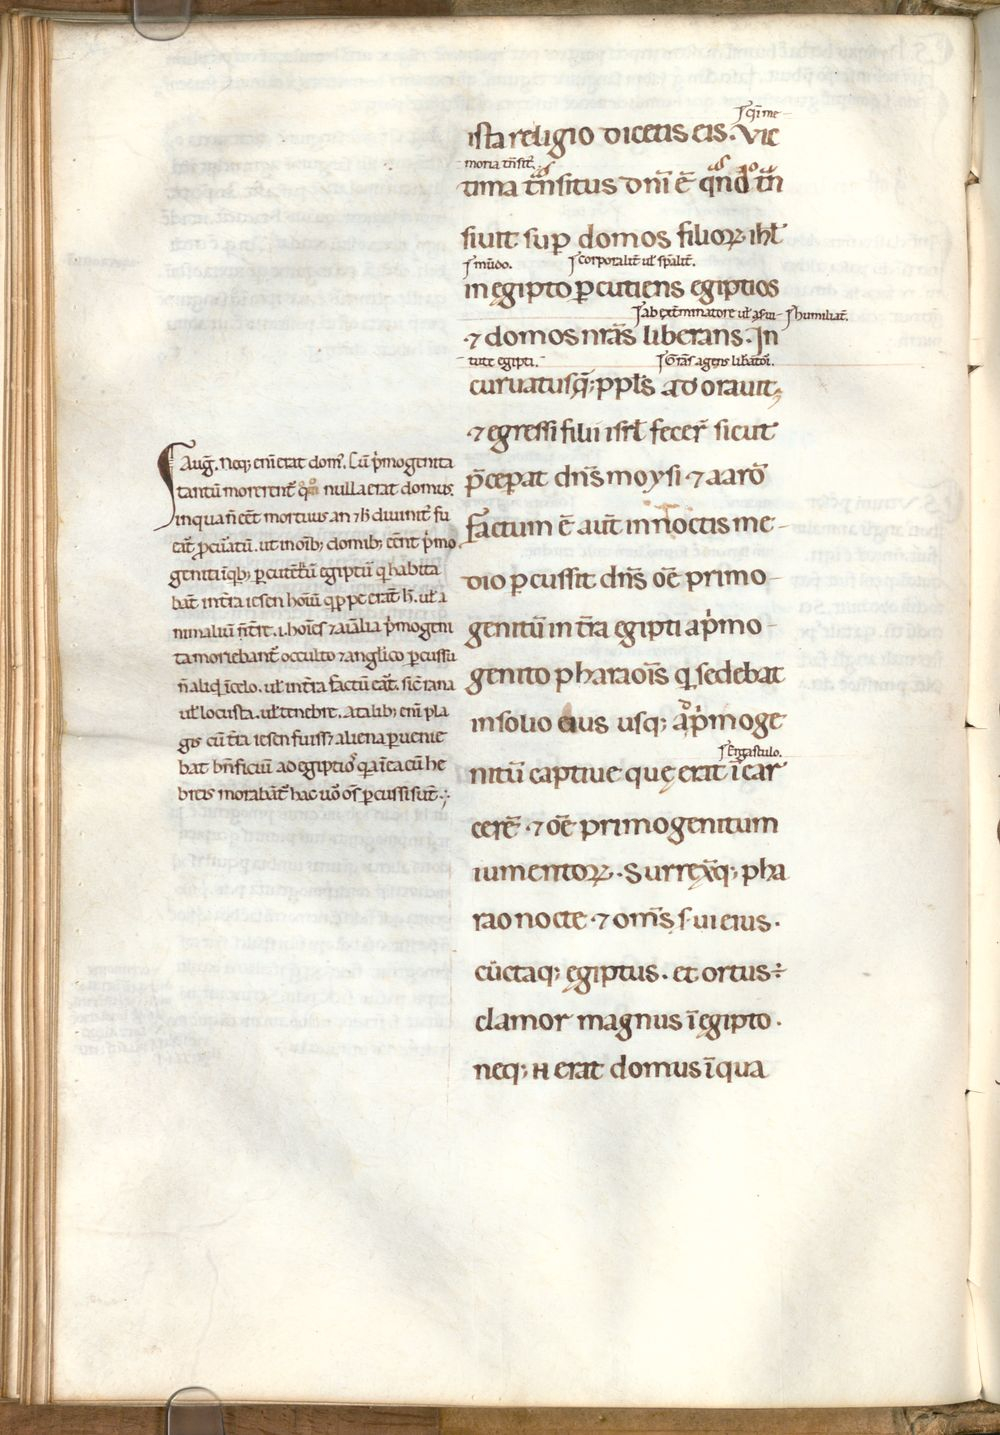 ista religio dicetis eis. Vic
tima t̄nsitus dn̄i ē qn̄do t̄n
siuit sup̱ domos filioꝝ. ihl̄
in egipto ꝑcutiens egiptios
⁊ domos nr̄as liberans. In
curuatusq̄; ppl̄s adorauit;
⁊ egressi filii isrl̄ fecer̄ sicut
p̄cepat dn̄s moysi ⁊ aarō
factum ē aut̄ in noctis me-
dio ꝑcussit dn̄s oē primo-
genitū in t̄ra egipti a pͥmo-
genito pharaoīs q̄ sedebat
in solio eius usq; ad pͥmoge
nitū captiue quę erat ī car
cere ⁊ oē primogenitum
iumentoꝝ. Surrex̄q; pha
rao nocte ⁊ om̄s s̄ui eius.
cūctaq; egiptus. et ortus ÷
clamor magnus ī egipto.
neq; n̄ erat domus ī qua
Auḡ. Neq; eni erat dom᷒. Cū pͥmogenita
tantū morerent̄ qͦmͦ nulla erat domus.
in qua n̄ eēt mortuus an ⁊ h̄ diuinit᷒ fu
erat pͦcuratū. ut in oīb; domib; eēnt pͥmo
geniti ī qͥb; ꝑcuterēt̄ egiptii qͥ habita
bāt in t̄ra iesen
nimaliū
ta moriebant̄ occulto ⁊ anglico ꝑcussu
n̄ aliqͥ ī celo. ul̄ in t̄ra factū erāt. sic̄ rana
ul̄ locusta. ul̄ tenebre. a talib; eni pla
gis cū t̄ra iesen fuiss& aliena ꝑuenie
bat bn̄ficiū ad egiptios qͥ in ea cū he
breis morabāt̄ hac uͦo oēs ꝑcussi sūt.
ſ. qi me-
moria
ſ. mūdo.
ſ. corporalit̄ ul̄ sp̄alit̄.
ſ. ab ext̄minatore ul̄ a ſui-
ſ. humiliat̄.
tute egipti.
ſ. Gr̄as agens lib̄atori.
ſ. Ergastulo.